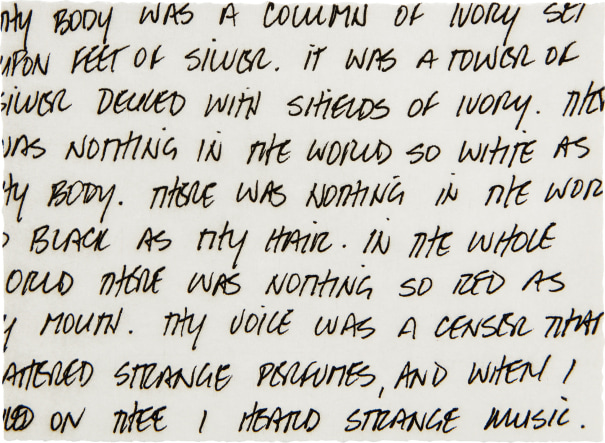 THY BODY WAS A COLUMN OF IVORY SET
UPON FEET OF SILVER. IT WAS A TOWER OF
SILVER DECKED WITH SHIELDS OF IVORY. THER
WAS NOTHING IN THE WORLD SO WHITE AS
HY BODY. THERE WAS NOTHING IN THE WOR
BLACK AS THY HAIR. IN THE WHOLE
ORLD THERE WAS NOTHING SO RED AS
Y MOUTH. THY VOICE WAS A CENSER THAT
ATTERED STRANGE PERFUMES, AND WHEN I
KED ON THEE I HEARD STRANGE MUSIC.